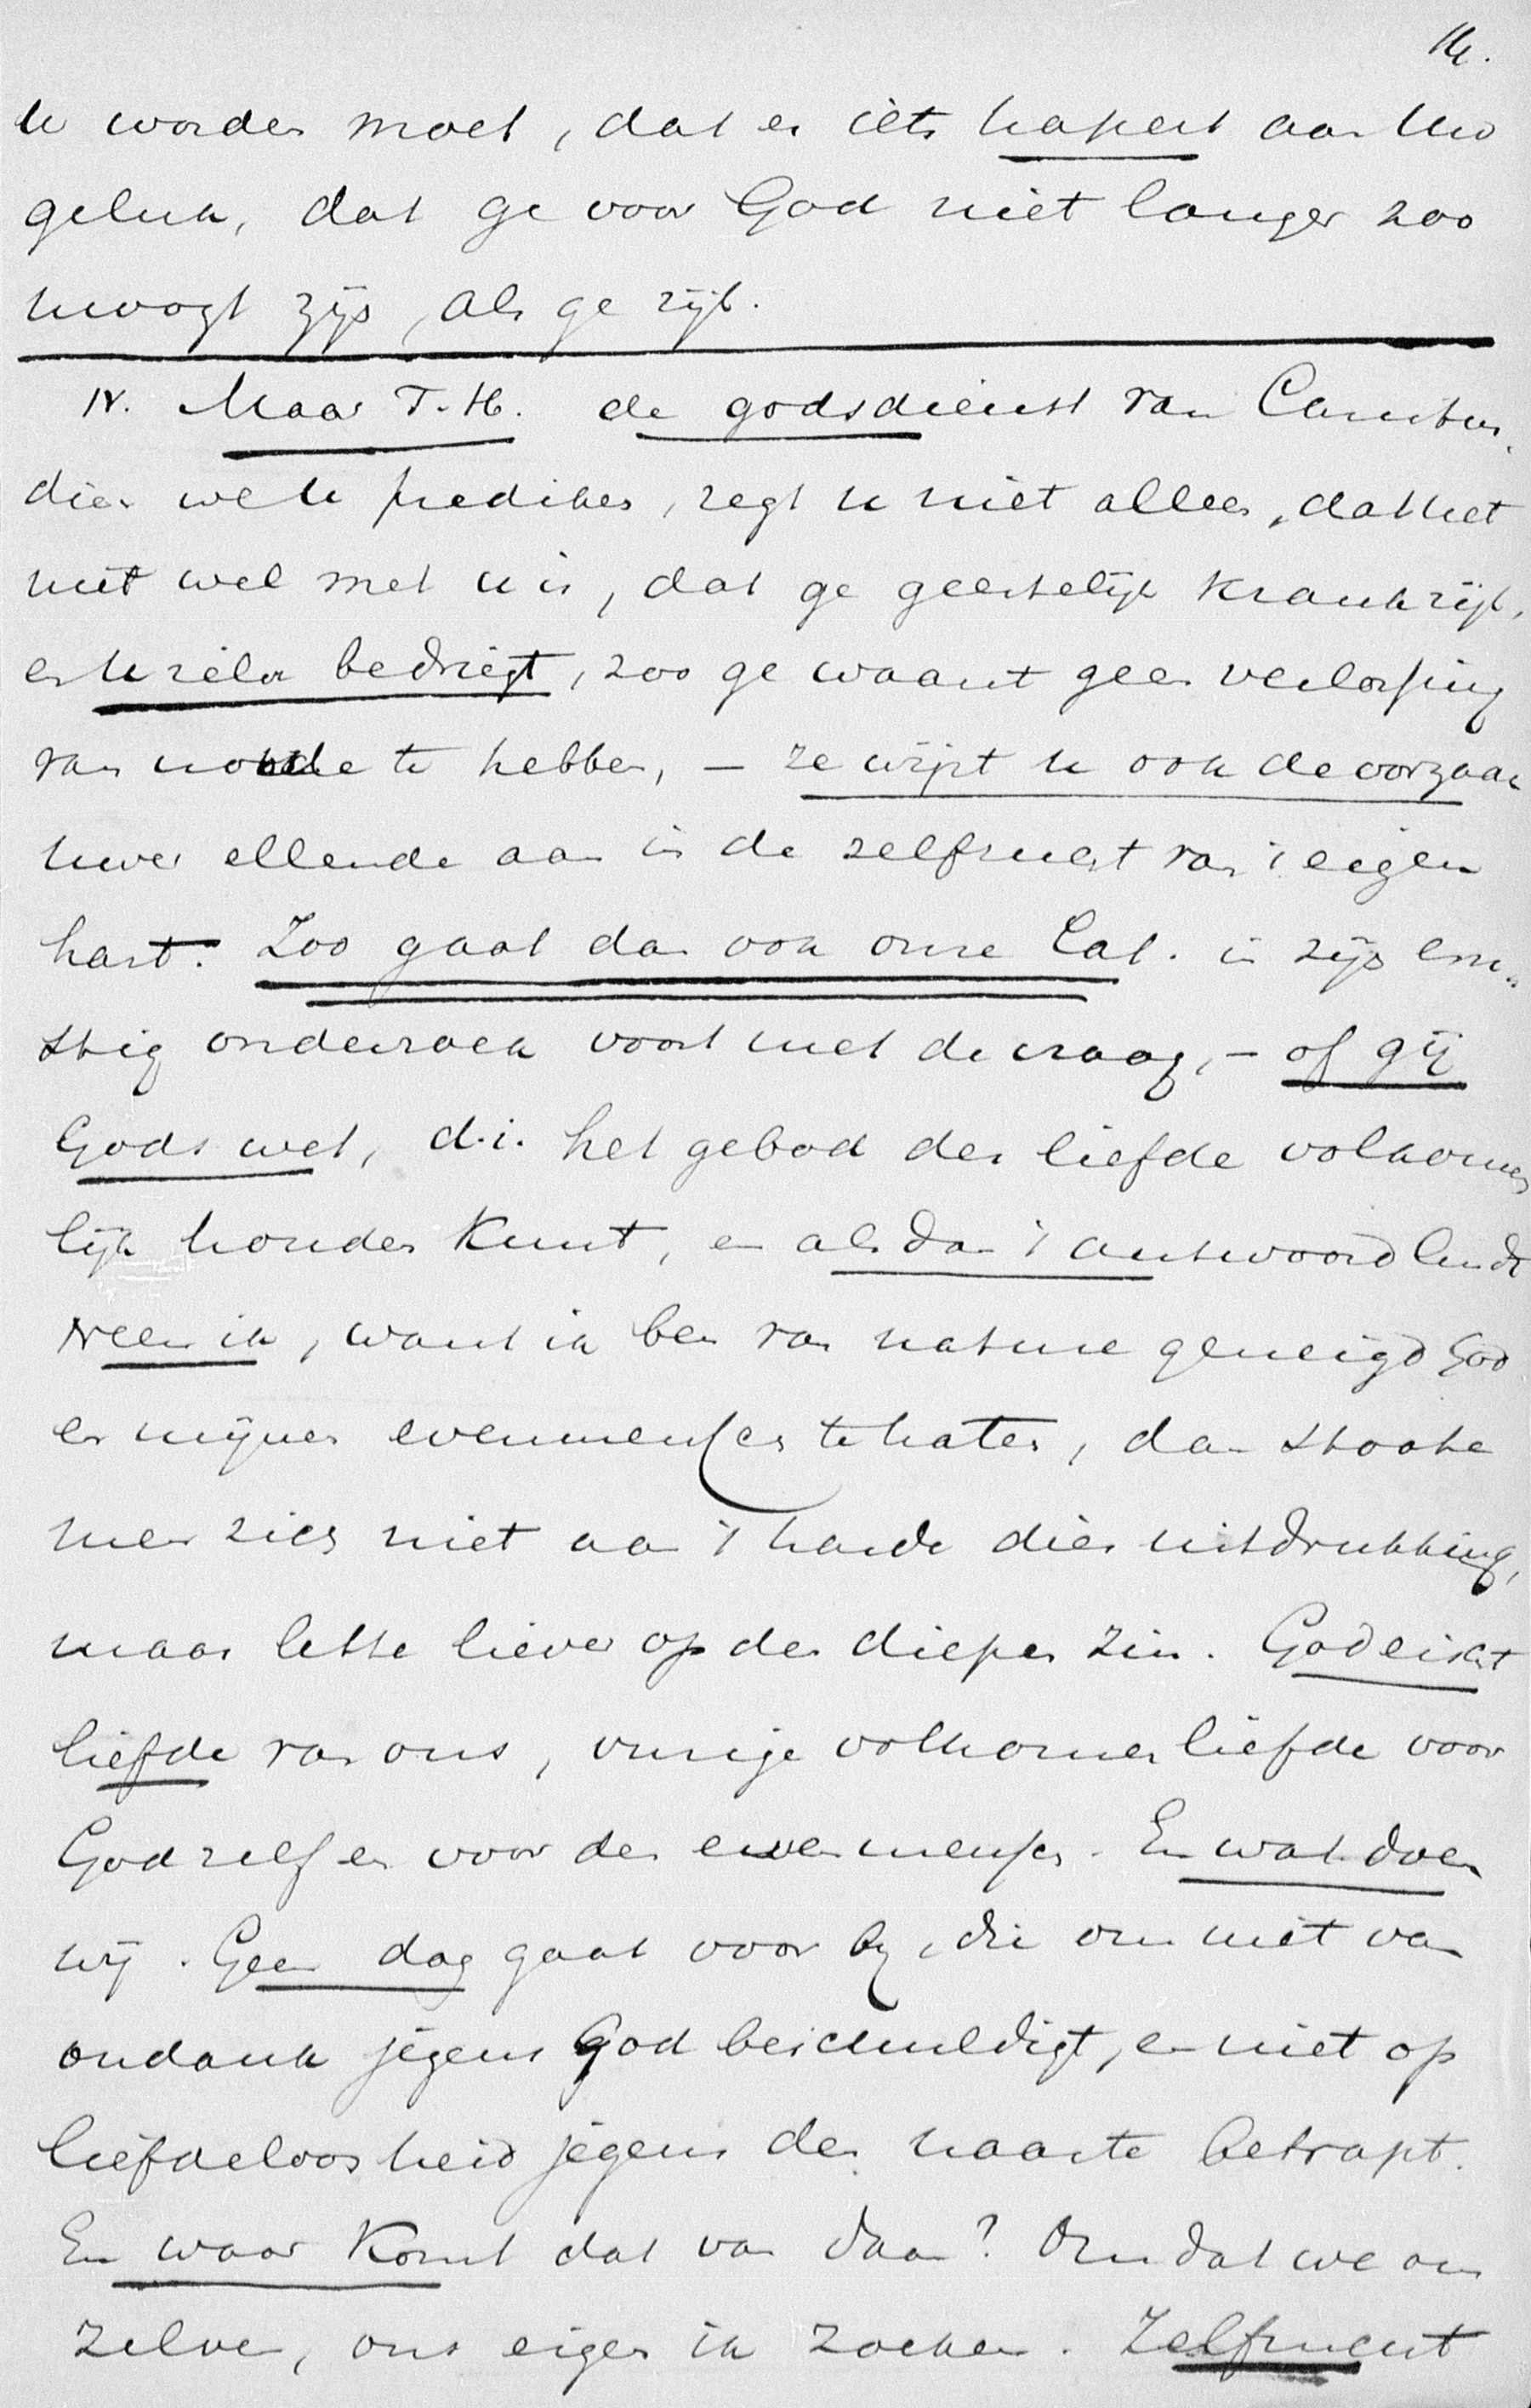 14.
U worden moet, dat er iets hapert aan Uw
geluk, dat ge voor God niet langer zoo
moogt zijn, als ge zijt.
IV. Maar T. H. de godsdienst van
dien we U prediken, zegt u niet alleen, dat het
niet wel met u is, dat ge geestelijk krank zijt,
en U zelv bedriegt, zoo ge waant geen verlossing
van noode te hebben, – ze wijst u ook de oorzaak
uwer ellende aan in de zelfzucht van 't eigen
hart. Zoo gaat dan ook onze Cat. in zijn ern-
stig onderzoek voort met de vraag, – of gij
Gods wet, d.i. het gebod der liefde volkomen
lijk houden kunt, en als dan 't antwoord luidt
Neen ik, want ik ben van nature geneigd God
en mijnen evenmensen te haten, dan stoote
men zich niet aan 't harde dier uitdrukking,
maar lette liever op den diepen zin. God eischt
liefde van ons, vurige volkomen liefde voor
God zelf en voor den evenmensen. En wat doen
wij. Geen dag gaat voor by, die ons niet van
ondank jegens God beschuldigt, en niet op
liefdeloosheid jegens den naaste betrapt.
En waar komt dat van daan? Omdat we ons
zelven, ons eigen ik zoeken. Zelfzucht